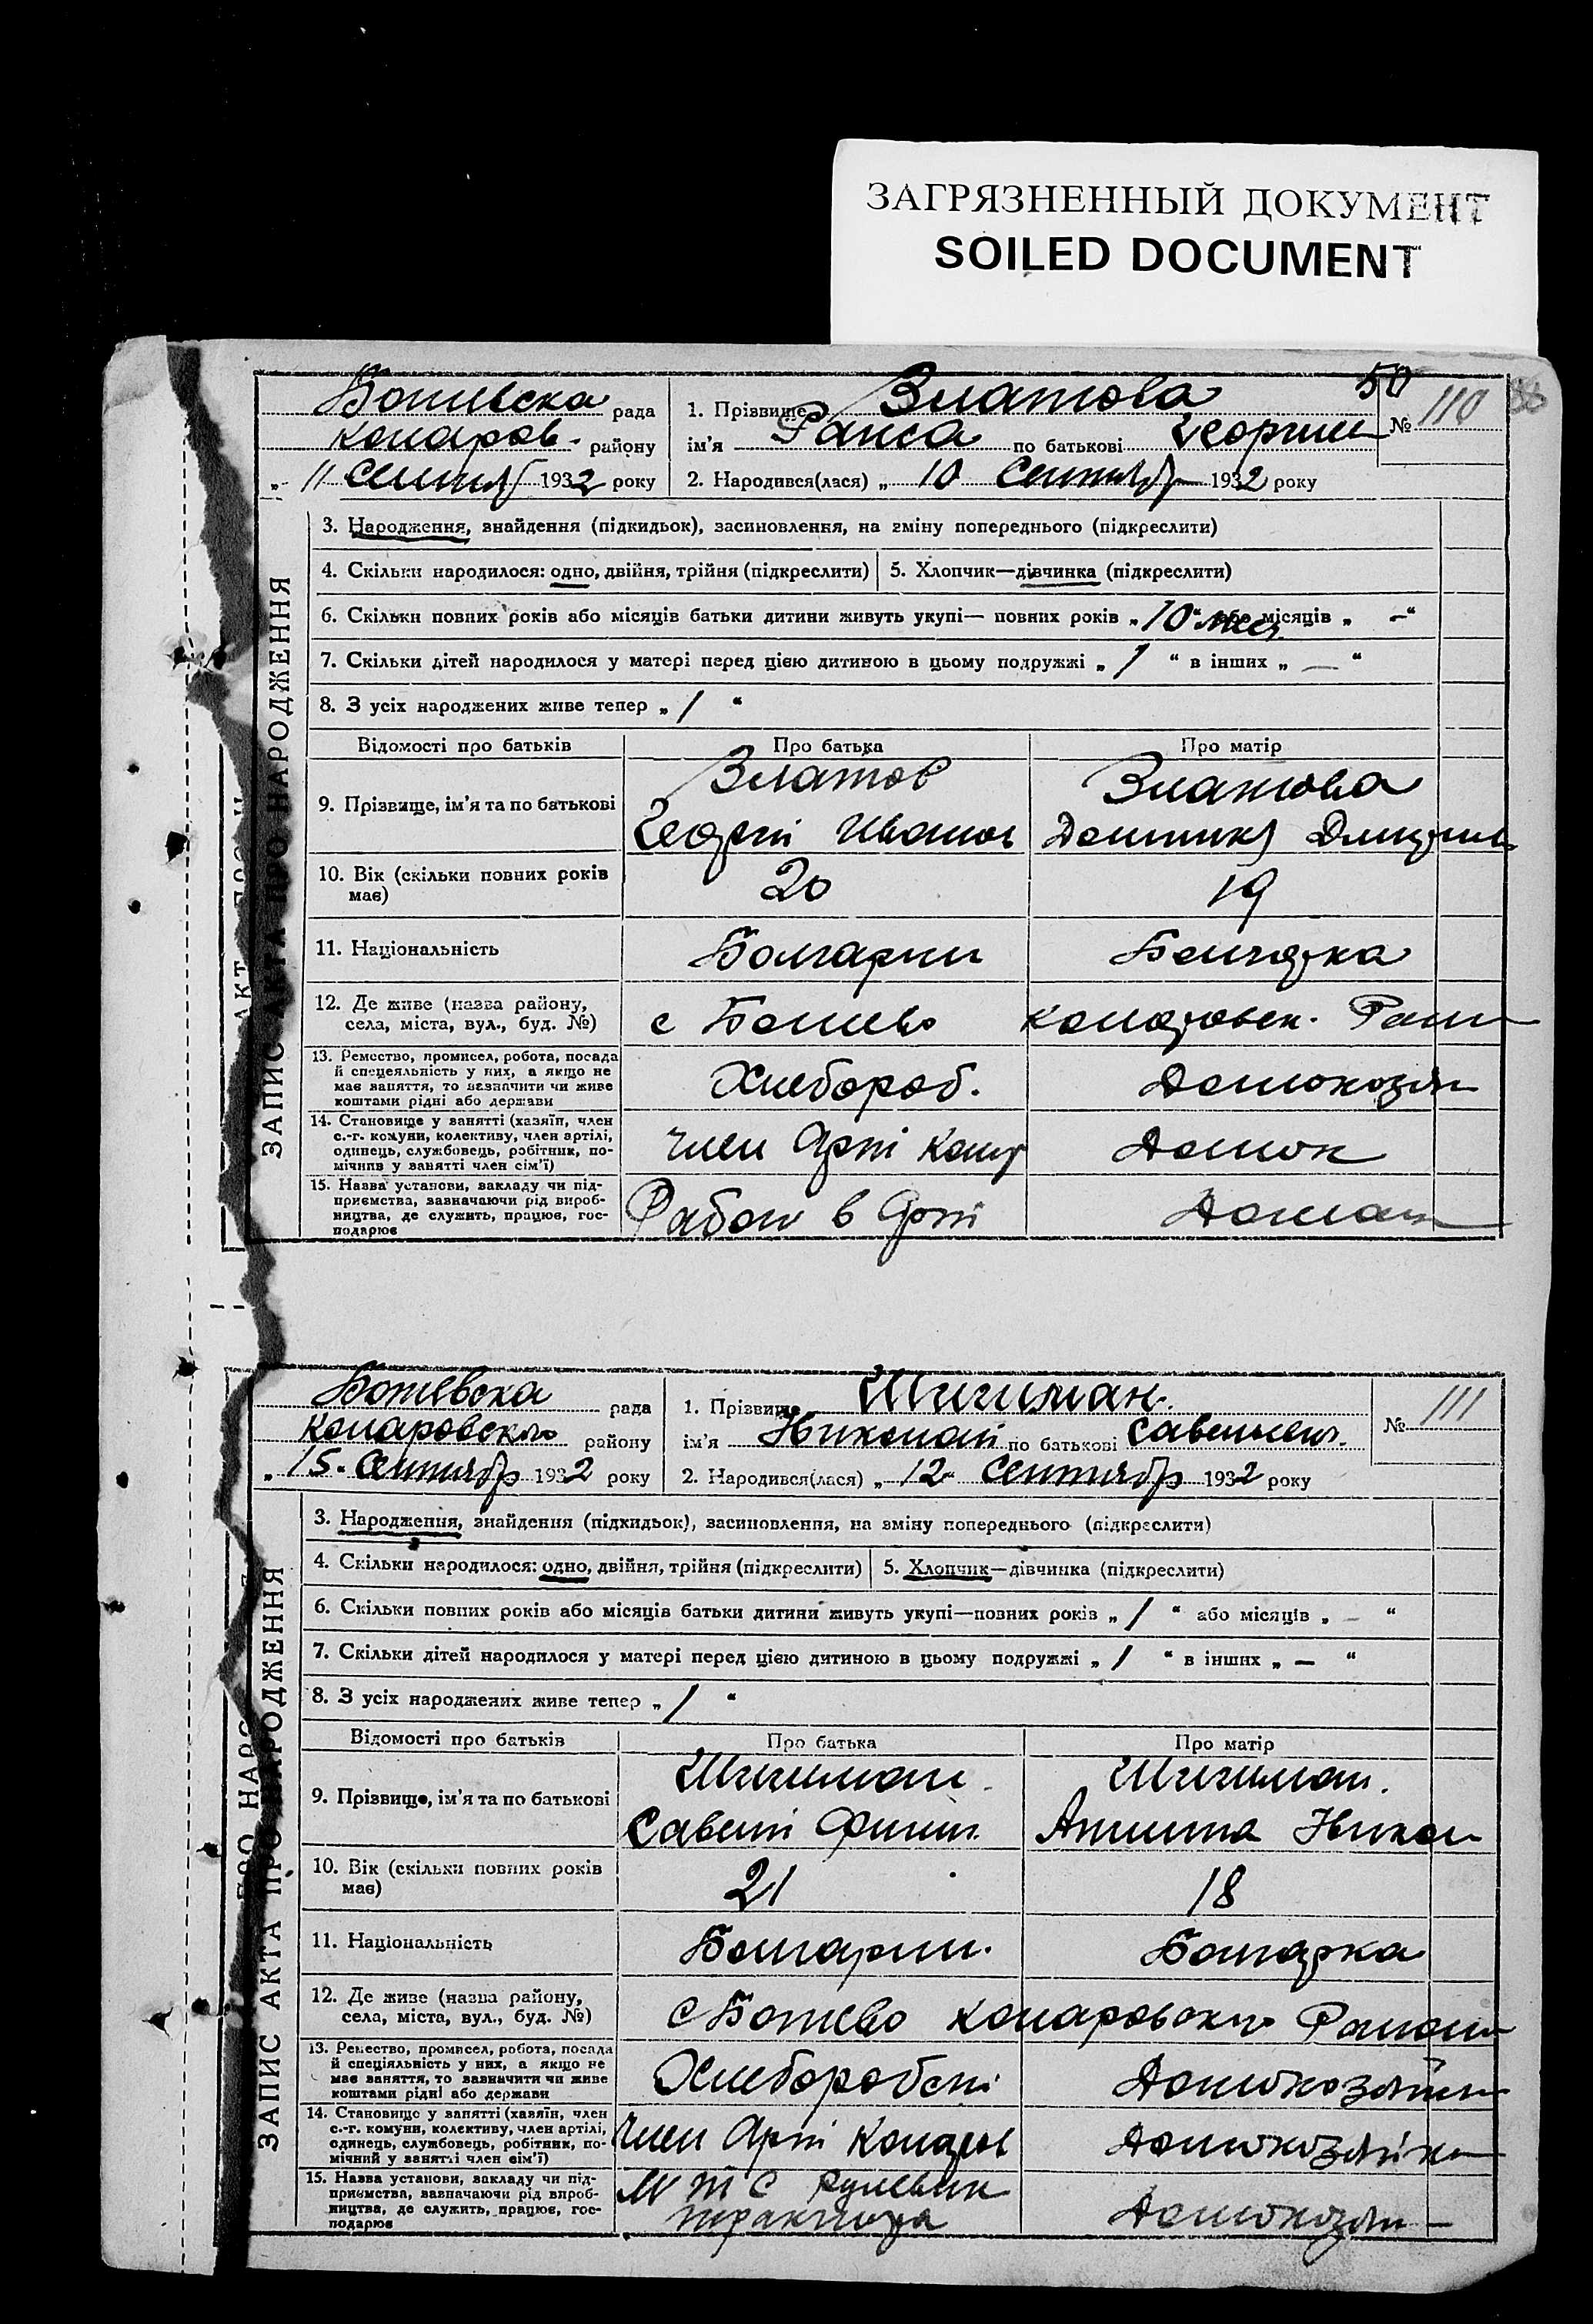 ЗАГРЯЗНЕННЫЙ ДОКУМЕНТ
SOILED DOCUMENT
50
88
Ботевска рада
Коларов. району
„ 11 Сентяб 1932 року
1. Прізвище Златова
ім'я Раиса по батькові Георгиев
№ 110
2. Народився(лася) „ 10 Сентябр 1932 року
ЗАПИС АКТА ПРО НАРОДЖЕННЯ
3. Народження, знайдення (підкидьок), засиновлення, на зміну попереднього (підкреслити)
4. Скільки народилося: одно, двійня, трійня (підкреслити) 5. Хлопчик—дівчинка (підкреслити)
6. Скільки повних років або місяців батьки дитини живуть укупі— повних років „ 10 мес “ або місяців „ – “
7. Скільки дітей народилося у матері перед цією дитиною в цьому подружжі „ 1 “ в інших „ — “
8. З усіх народжених живе тепер „ 1 “
Відомості про батьків Про батька Про матір
9. Прізвище, ім'я та по батькові
Златов
Георгі Иванов
Златова
Домника
10. Вік (скільки повних років має) 20 19
11. Національність Болгарин Болгарка
12. Де живе (назва району, села, міста, вул., буд. №) с Ботево Коларовск. Район
13. Ремество, промисел, робота, посада й спецеяльність у них, а якщо не має заняття, то зазначити чи живе коштами рідні або держави
Хлебороб. Домохозяй
14. Становище у занятті (хазяїн, член с.-г. комуни, колективу, член артілі, одинець, службовець, робітник, помічник у занятті член сім'ї)
член Арті Колар Домох
15. Назва установи, закладу чи підприємства, зазначаючи рід виробництва, де служить, працює, господарює
Работ в Арті
Ботевска рада
Коларовского району
„ 15. Сентябр 1932 року
1. Прізвище Шишман.
ім'я Николай по батькові Савельев.
№ 111
2. Народився(лася) „ 12 Сентябр 1932 року
ЗАПИС АКТА ПРО НАРОДЖЕННЯ
3. Народження, знайдення (підкидьок), засиновлення, на зміну попереднього (підкреслити)
4. Скільки народилося: одно, двійня, трійня (підкреслити) 5. Хлопчик—дівчинка (підкреслити)
6. Скільки повних років або місяців батьки дитини живуть укупі—повних років „ 1 “ або місяців „ – “
7. Скільки дітей народилося у матері перед цією дитиною в цьому подружжі „ 1 “ в інших „ — “
8. З усіх народжених живе тепер „ 1 “
Відомості про батьків Про батька Про матір
9. Прізвище, ім'я та по батькові
Шишман.
Савелі Филип.
Шишман.
Николи
10. Вік (скільки повних років має) 21 18
11. Національність Болгарин. Болгарка
12. Де живе (назва району, села, міста, вул., буд. №) с Ботево Коларовского Район
13. Ремество, промисел, робота, посада й спеціяльність у них, а якщо не має заняття, то зазначити чи живе коштами рідні або держави
Хлеборобст Домохозяйка
14. Становище у занятті (хазяїн, член с.-г. комуни, колективу, член артілі, одинець, службовець, робітник, помічний у занятті член сім'ї)
член Арті Коларов Домохозяйка
15. Назва установи, закладу чи підприємства, зазначаючи рід виробництва, де служить, працює, господарює
М Т С рулевик
трактора
Домохозяй